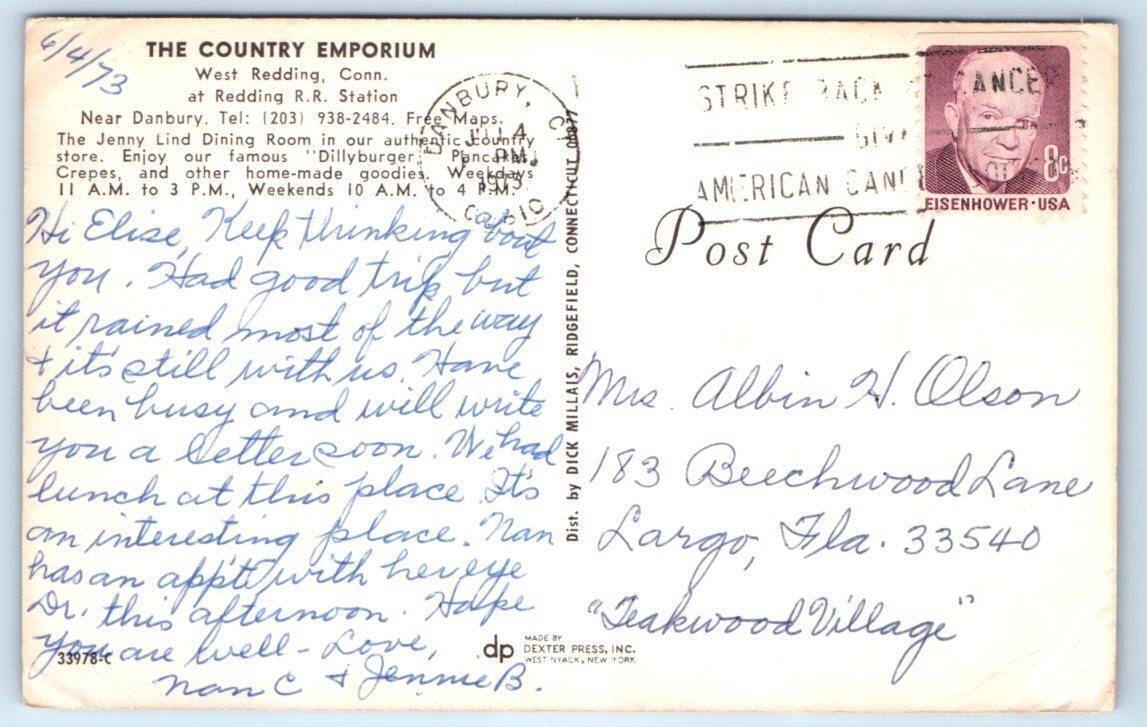 6/4/73
THE COUNTRY EMPORIUM
West Redding, Conn.
at Redding R.R. Station
Near Danbury. Tel: (203) 938-2484. Free Maps.
The Jenny Lind Dining Room in our authentic country
store. Enjoy our famous "Dillyburger," Pancakes,
Crepes, and other home-made goodies. Weekdays
11 A.M. to 3 P.M., Weekends 10 A.M. to 4 P.M.
Hi Elise, Keep thinking about
you. Had good trip but
it rained most of the way
+ it's still with us. Have
been busy and will write
you a letter soon. We had
lunch at this place. It's
an interesting place. Nan
has an app't with her eye
Dr. this afternoon. Hope
you are well - Love,
Nan C + Jennie B.
33978-C
Dist. by DICK MILLAIS, RIDGEFIELD, CONNECTICUT 06877
dp MADE BY
DEXTER PRESS, INC.
WEST NYACK, NEW YORK
DANBURY, CT
PM
1973
STRIKE BACK CANCER
GIVE
AMERICAN CANCER
8c
EISENHOWER·USA
Post Card
Mrs. Albin H. Olson
183 Beechwood Lane
Largo, Fla. 33540
"Teakwood Village"